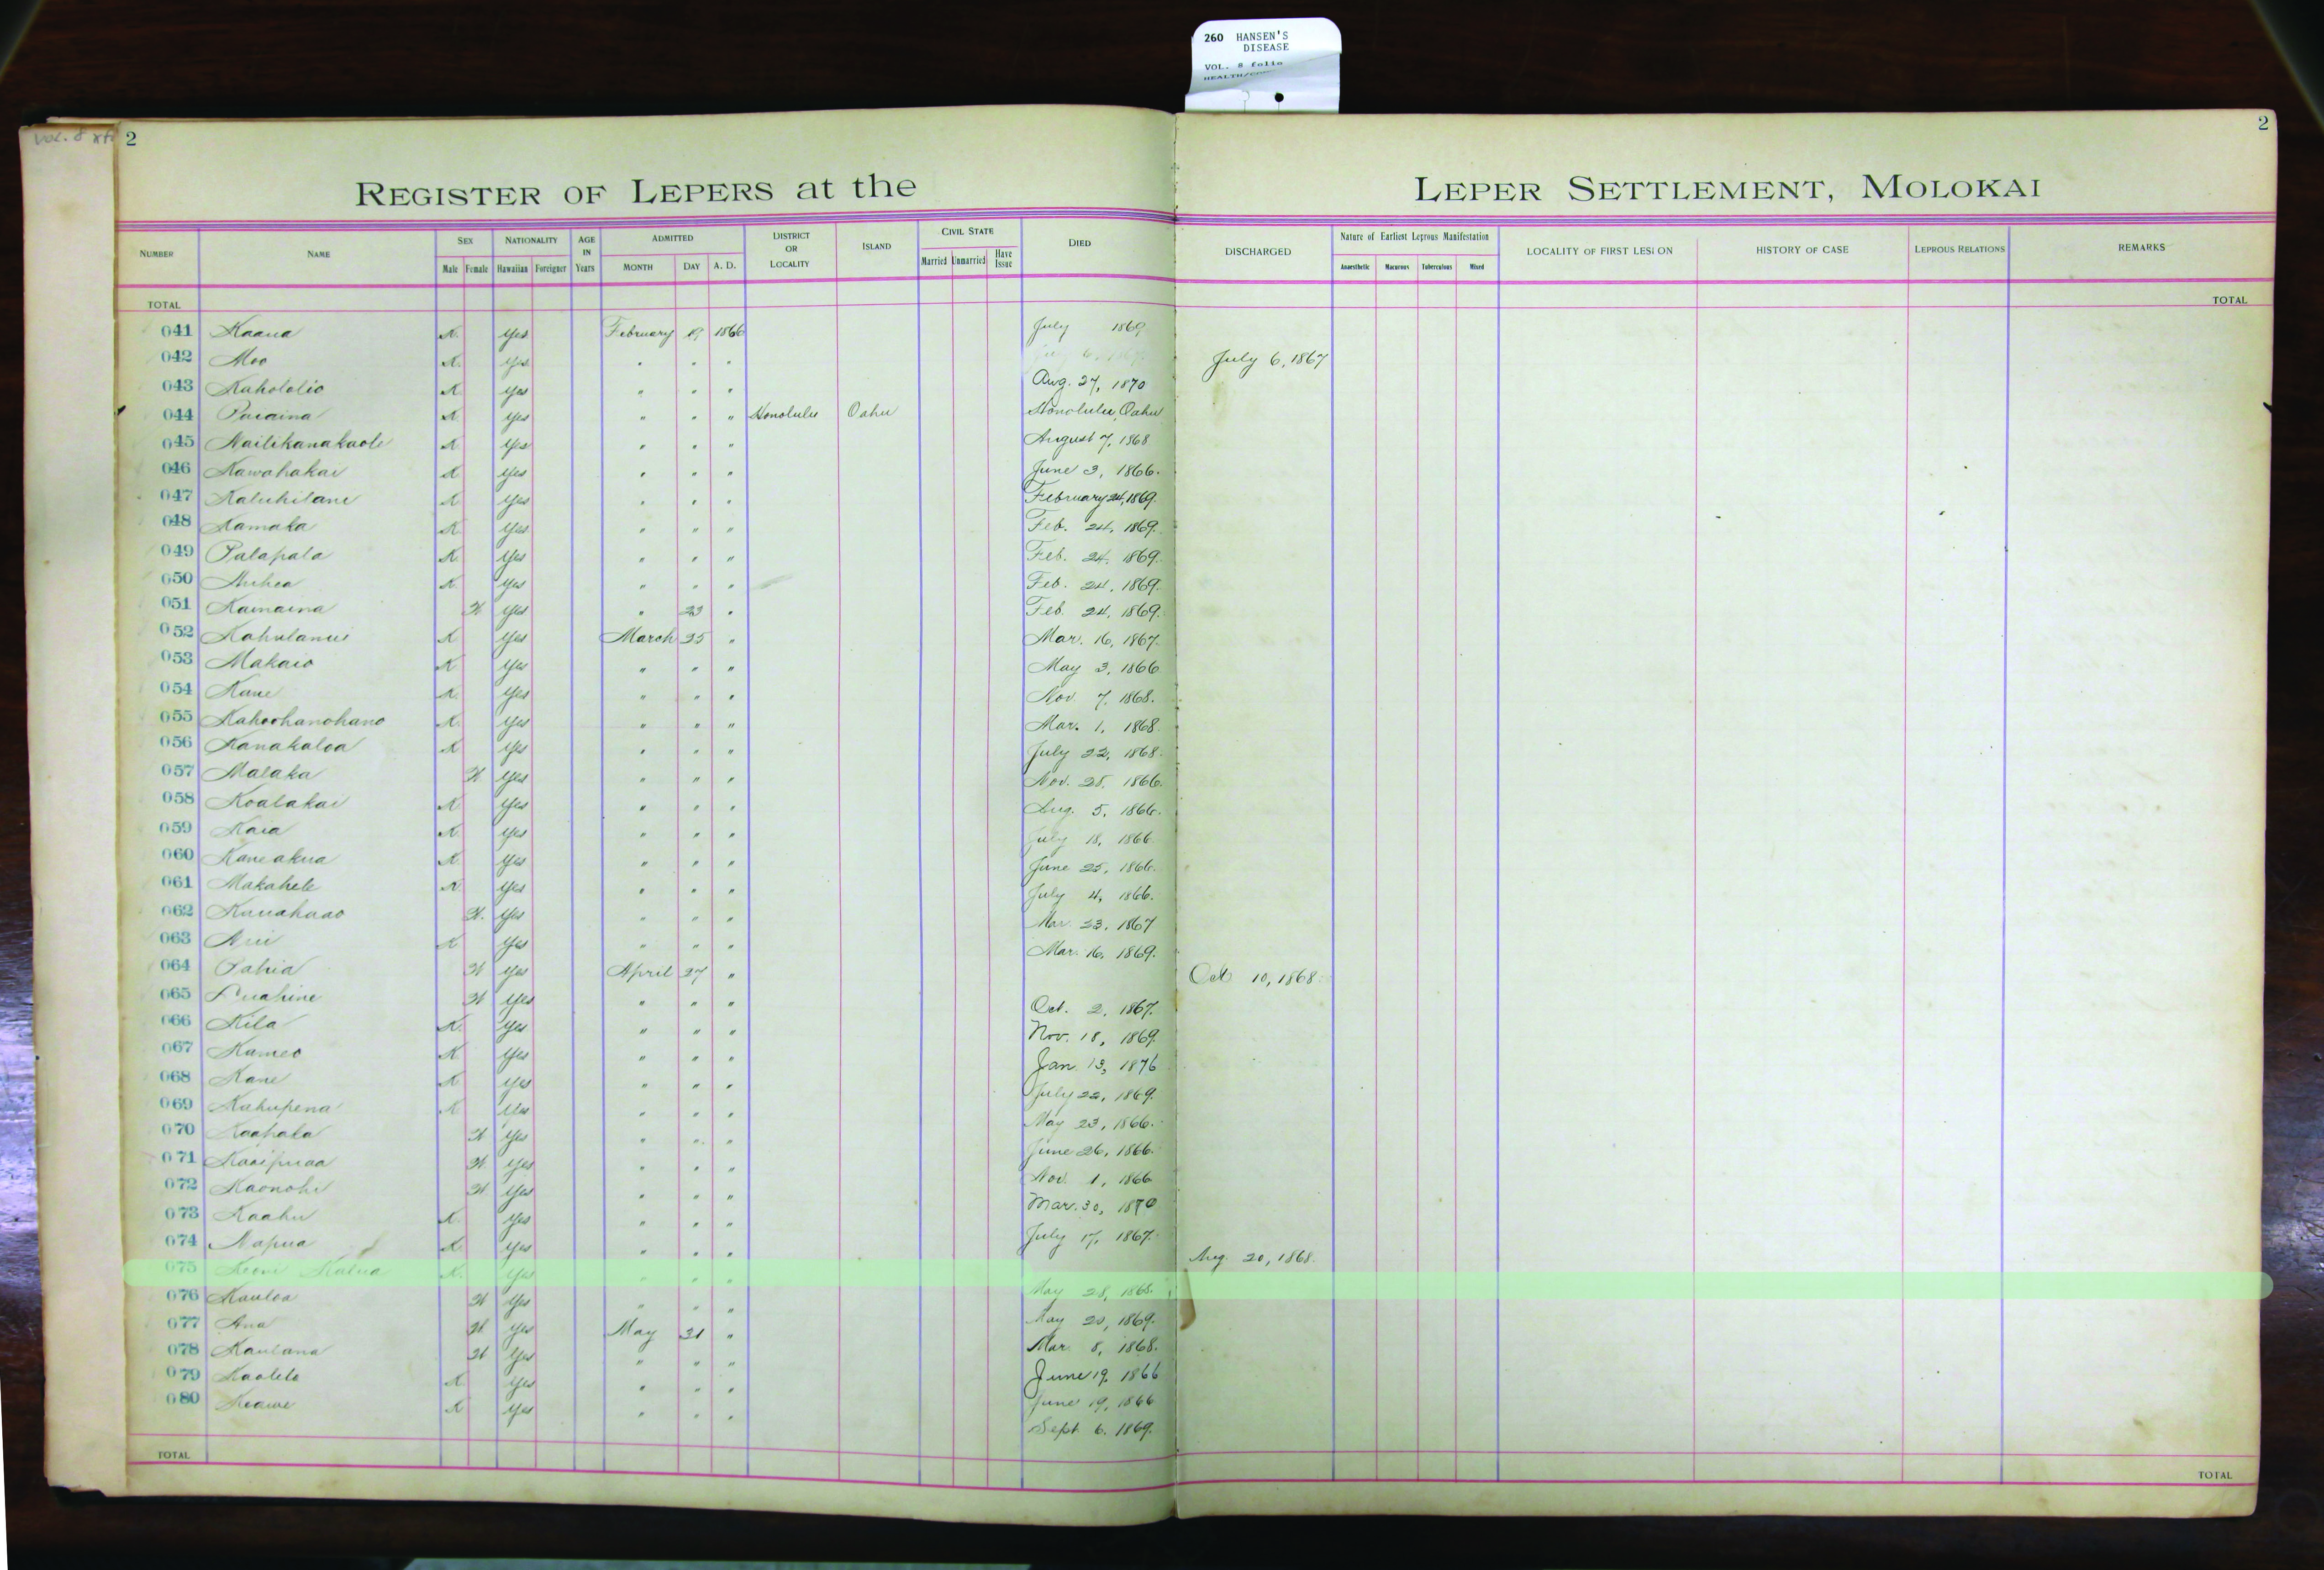 260 HANSEN'S
DISEASE
VOL. 8 folio
Vol. 8
2
2
REGISTER OF LEPERS at the LEPER SETTLEMENT, MOLOKAI
NUMBER NAME SEX NATIONALITY AGE IN Years ADMITTED DISTRICT OR LOCALITY ISLAND CIVIL STATE DIED DISCHARGED Nature of Earliest Leprous Manifestation LOCALITY OF FIRST LESION HISTORY OF CASE LEPROUS RELATIONS REMARKS
Male Female Hawaiian Foreigner MONTH DAY A. D. Married Unmarried Have Issue Anaesthetic Macurous Tuberculous Mixed
TOTAL TOTAL
041 Kaaua K. Yes February 19 1866 July 1869
042 Moo K. Yes " " " July 6, 1867
043 Kahololio K Yes " " " Aug. 27, 1870
044 Puaaina K Yes " " " Honolulu Oahu Honolulu, Oahu
045 Nailikanakaole K Yes " " " August 7, 1868
046 Kawahakai K Yes " " " June 3, 1866.
047 Kaluhilani K Yes " " " February 24, 1869.
048 Kamaka K Yes " " " Feb. 24, 1869.
049 Palapala K. Yes " " " Feb. 24, 1869.
050 Auhea K. Yes " " " Feb. 24, 1869.
051 Kamaina W. Yes " 23 " Feb. 24, 1869.
052 Kahulanui K Yes March 25 " Mar. 16, 1867.
053 Makaio K Yes " " " May 3, 1866
054 Kane K. Yes " " " Nov. 7, 1868.
055 Kahoohanohano K. Yes " " " Mar. 1, 1868.
056 Kanakaloa K Yes " " " July 22, 1868.
057 Malaka W Yes " " " Nov. 28, 1866.
058 Koalakai K Yes " " " Aug. 5, 1866.
059 Kaia K. Yes " " " July 18, 1866.
060 Kaneakua K. Yes " " " June 25, 1866.
061 Makahele K. Yes " " " July 4, 1866.
062 Kauahaao W. Yes " " " Mar. 23, 1867
063 Aui K Yes " " " Mar. 16, 1869.
064 Pahia W Yes April 27 " Oct 10, 1868.
065 Puahine W Yes " " " Oct. 2, 1867.
066 Kila K. Yes " " " Nov. 18, 1869.
067 Kameo K Yes " " " Jan. 13, 1876
068 Kane K Yes " " " July 22, 1869.
069 Kahupena K Yes " " " May 23, 1866.
070 Kaahala W Yes " " " June 26, 1866.
071 Kaaipuaa W. Yes " " " Nov. 1, 1866
072 Kaonohi W Yes " " " Mar. 30, 1870
073 Kaahu K. Yes " " " July 17, 1867.
074 Napua K. Yes " " " Aug. 20, 1868.
075 Keoni Kalua K. Yes " " " May 28, 1868.
076 Kauloa W Yes " " " May 20, 1869.
077 Ana W. Yes May 31 " Mar. 8, 1868.
078 Kaulana W Yes " " " June 19, 1866
079 Kaolelo K. Yes " " " June 19, 1866
080 Keawe K Yes " " " Sept. 6. 1869.
TOTAL TOTAL